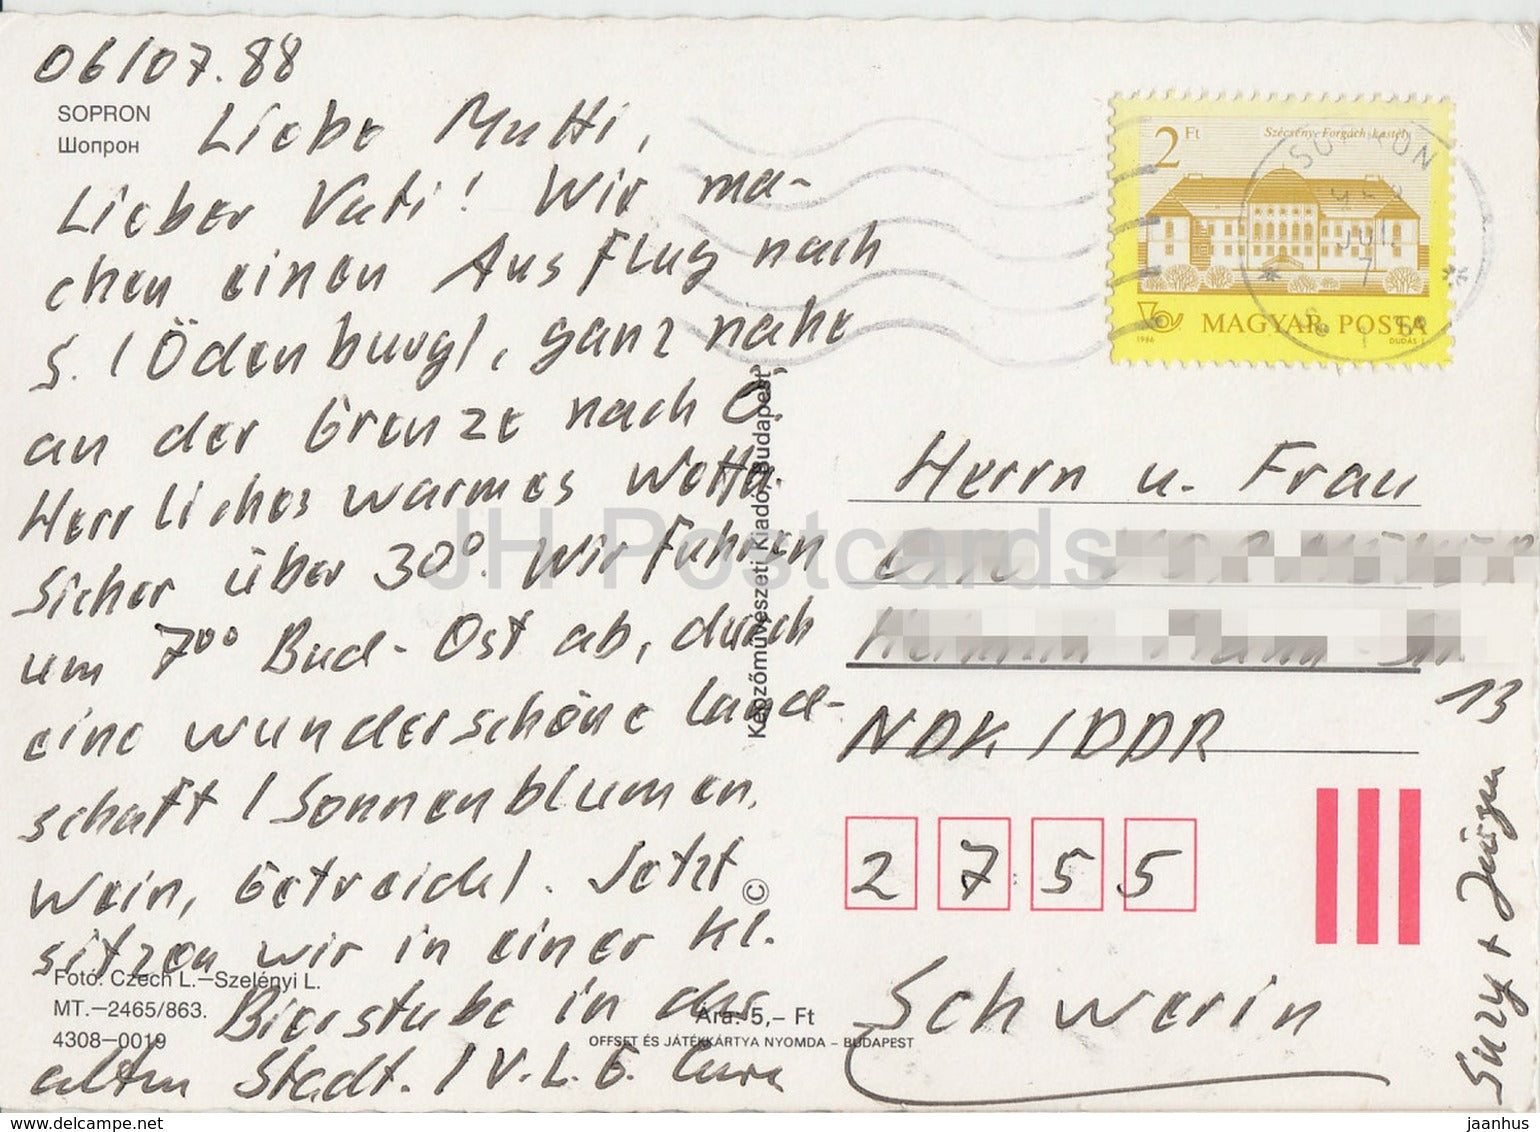 06/07.88
SOPRON
Шопрон
Liebe Mutti,
Lieber Vati! Wir ma-
chen einen Ausflug nach
S. (Ödenburg), ganz nahe
an der Grenze nach Ö.
Herrliches warmes Wetter.
Sicher über 30°. Wir fuhren
um 7⁰⁰ Bud-Ost ab, durch
eine wunderschöne Land-
schaft (Sonnenblumen,
Wein, Getreide). Jetzt
sitzen wir in einer kl.
Bierstube in der
alten Stadt. V.L.G. Eure
Suzy + Jürgen
Fotó: Czech L.–Szelényi L.
MT.–2465/863.
4308–0019
Ára: 5,– Ft
OFFSET ÉS JÁTÉKKÁRTYA NYOMDA – BUDAPEST
Képzőművészeti Kiadó, Budapest
©
2 Ft
Szécsény-Forgách-kastély
MAGYAR POSTA
1986
DUDÁS L.
SOPRON
Herrn u. Frau
13
NDK / DDR
2 7 5 5
Schwerin
JH Postcards
delcampe.net
jaanhus